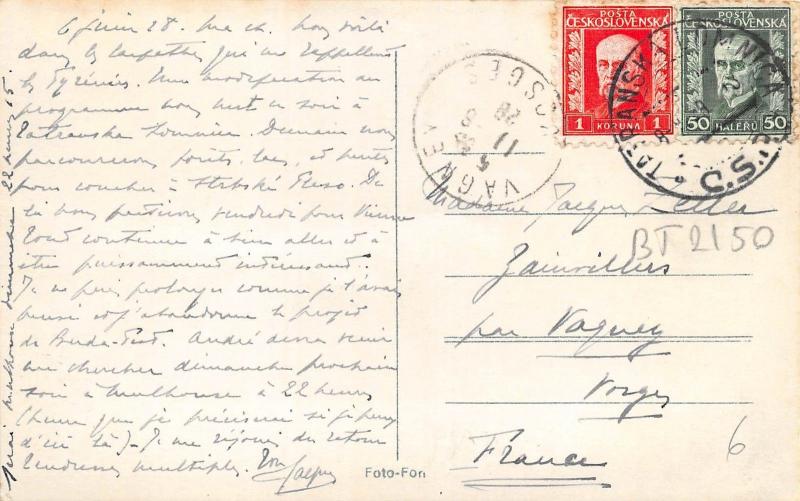 6 juin 28. Ma ch. nous voilà
dans les Carpathes qui me rappellent
les Pyrénées. Une modification au
programme nous met ce soir à
Tatranska Lomnica. Demain nous
parcourrons forêts, lacs, et
pour coucher à Strbské Pleso. De
là nous partirons vendredi pour Vienne
Tout continue à bien aller et à
être puissamment intéressant.
Je ne puis prolonger comme je l'avais
pensé et j'abandonne le projet
de Buda-Pest. André devra venir
me chercher dimanche prochain
soir à Mulhouse à 22 heures
(heure que je préciserai si je peux
d'ici là) - Je me réjouis du retour
Tendresses multiples. Ton Jacques
serai Mulhouse dimanche 22 heures 15
POSTA
ČESKOSLOVENSKÁ
1 KORUNA 1
POSTA
ČESKOSLOVENSKÁ
50 HALÉRŮ 50
VAGNEY VOSGES
11
28
TATRANSKÁ LOMNICA
Č.S.D.
Madame Jacques
BT 2150
Zainvillers
par Vagney
Vosges
France
6
Foto-Fon